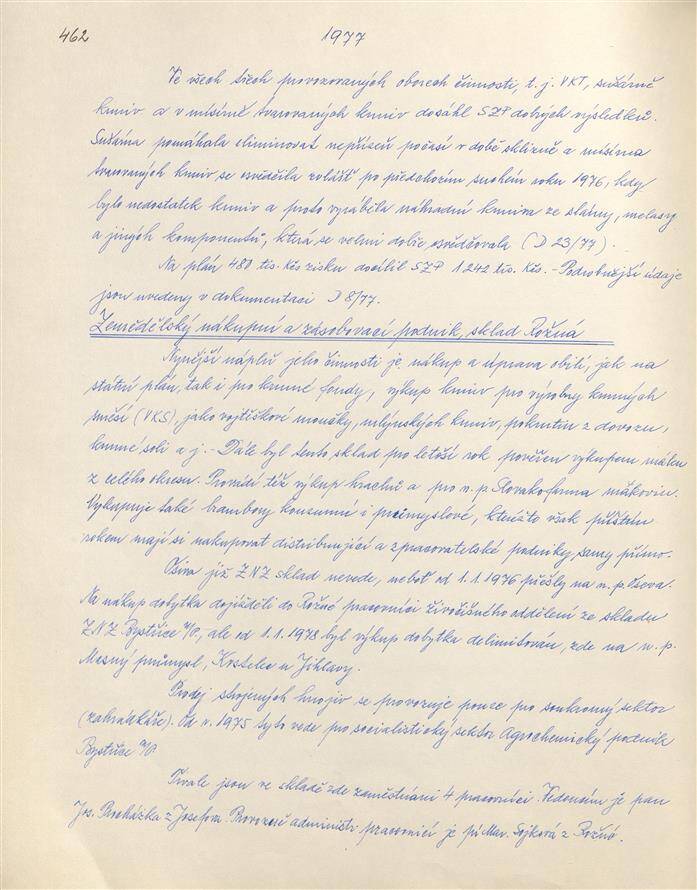 462
1977
Ve všech třech provozovaných oborech činnosti, t. j. VKT, sušárně
krmiv a v mísírně tvarovaných krmiv dosáhl SZP dobrých výsledků.
Sušárna pomáhala eliminovat nepřízeň počasí v době sklizně a mísírna
tvarovaných krmiv se osvědčila zvlášť po předchozím suchém roku 1976, kdy
bylo nedostatek krmiv a proto vyráběla náhradní krmiva ze slámy, melasy
a jiných komponentů, která se velmi dobře osvědčovala (D 23/77).
Na plán 480 tis. Kčs zisku docílil SZP 1 242 tis. Kčs. - Podrobnější údaje
jsou uvedeny v dokumentaci D 8/77.
Zemědělský nákupní a zásobovací podnik, sklad Rožná
Nynější náplň jeho činnosti je nákup a úprava obilí, jak na
státní plán, tak i pro krmné fondy, výkup krmiv pro výrobny krmných
směsí (VKS), jako vojtěškové moučky, mlýnských krmiv, pokrutin z dovozu,
krmné soli a j. - Dále byl tento sklad pro letoší rok pověřen výkupem máku
z celého okresu. Provádí též výkup hrachu a pro n. p. Slovakofarma makovin.
Vykupuje také brambory konzumní i průmyslové, kteréžto však příštím
rokem mají si nakupovat distribuující a zpracovatelské podniky samy přímo.
Osiva již ZNZ sklad nevede, neboť od 1. 1. 1976 přešly na n. p. Oseva.
Na nákup dobytka dojížděli do Rožné pracovníci živočišného oddělení ze skladu
ZNZ Bystřice n/P, ale od 1. 1. 1978 byl výkup dobytka delimitován, zde na n. p.
Masný průmysl, Kostelec u Jihlavy.
Prodej strojených hnojiv se provozuje pouze pro soukromý sektor
(zahrádkáře). Od r. 1975 tyto vede pro socialistický sektor Agrochemický podnik
Bystřice n/P.
Trvale jsou ve skladě zde zaměstnáni 4 pracovníci. Vedoucím je pan
Jos. Procházka z Josefova. Provozně administr. pracovnicí je pí Mar. Sojková z Rožné.